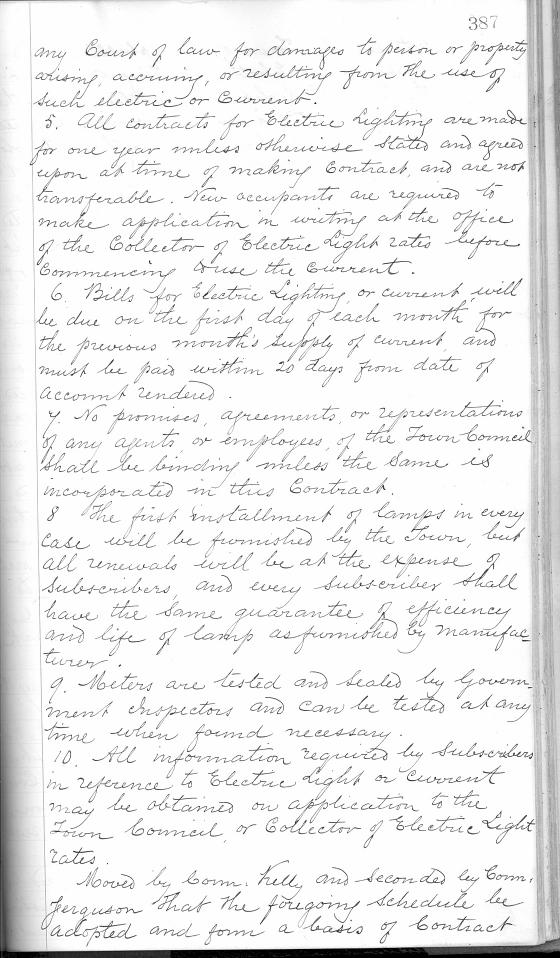 387
any Court of law for damages to person or property
arising, accruing, or resulting from the use of
such electric or Current.
5. All contracts for Electric Lighting are made
for one year unless otherwise stated and agreed
upon at time of making Contract, and are not
transferable. New occupants are required to
make application in writing at the office
of the Collector of Electric Light rates before
Commencing to use the Current.
6. Bills for Electric Lighting, or current, will
be due on the first day of each month for
the previous month's supply of current, and
must be paid within 20 days from date of
account rendered.
7. No promises, agreements, or representations
of any agents, or employees, of the Town Council
shall be binding unless the same is
incorporated in this Contract.
8 The first installment of lamps in every
case will be furnished by the Town, but
all renewals will be at the expense of
Subscribers, and every subscriber shall
have the same guarantee of efficiency
and life of lamp as furnished by manufac-
turer.
9. Meters are tested and sealed by Govern-
ment Inspectors and can be tested at any
time when found necessary.
10. All information required by Subscribers
in reference to Electric Light or current
may be obtained on application to the
Town Council, or Collector of Electric Light
rates.
Moved by Coun. Kelly and seconded by Coun.
Ferguson that the foregoing schedule be
adopted and form a basis of Contract